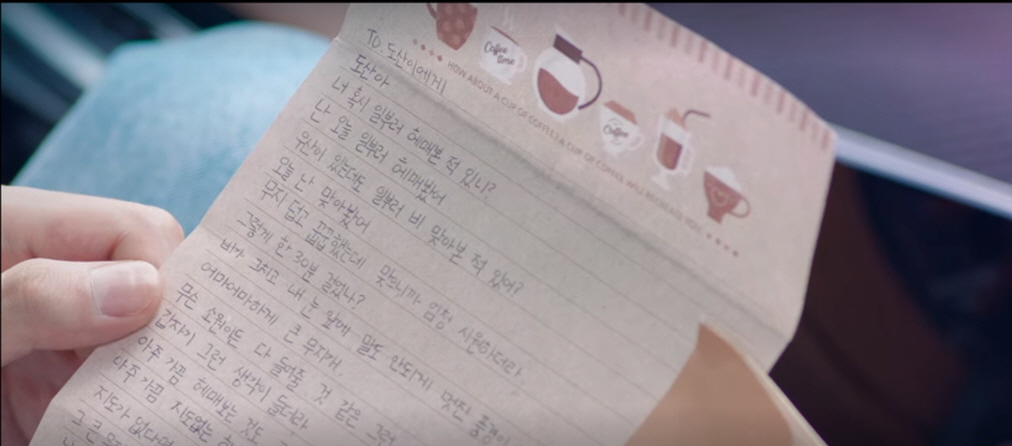 Coffee time
Coffee
HOW ABOUT A CUP OF COFFEE? A CUP OF COFFEE WILL RECREATE YOU!
TO. 도산이에게
도산아
너 혹시 일부러 헤매본 적 있니?
난 오늘 일부러 헤매봤어
우산이 있는데도 일부러 비 맞아본 적 있어?
오늘 난 맞아봤어
무지 덥고 꿉꿉했는데 맞으니까 엄청 시원하더라.
그렇게 한 30분 걸었나?
비가 그치고 내 눈 앞에 말도 안되게 멋진 풍경이
어마어마하게 큰 무지개
무슨 소원이든 다 들어줄 것 같은 그런
갑자기 그런 생각이 들더라
아주 가끔 헤매보는 것도
아주 가끔 지도없는
지도가 없다면
그 큰